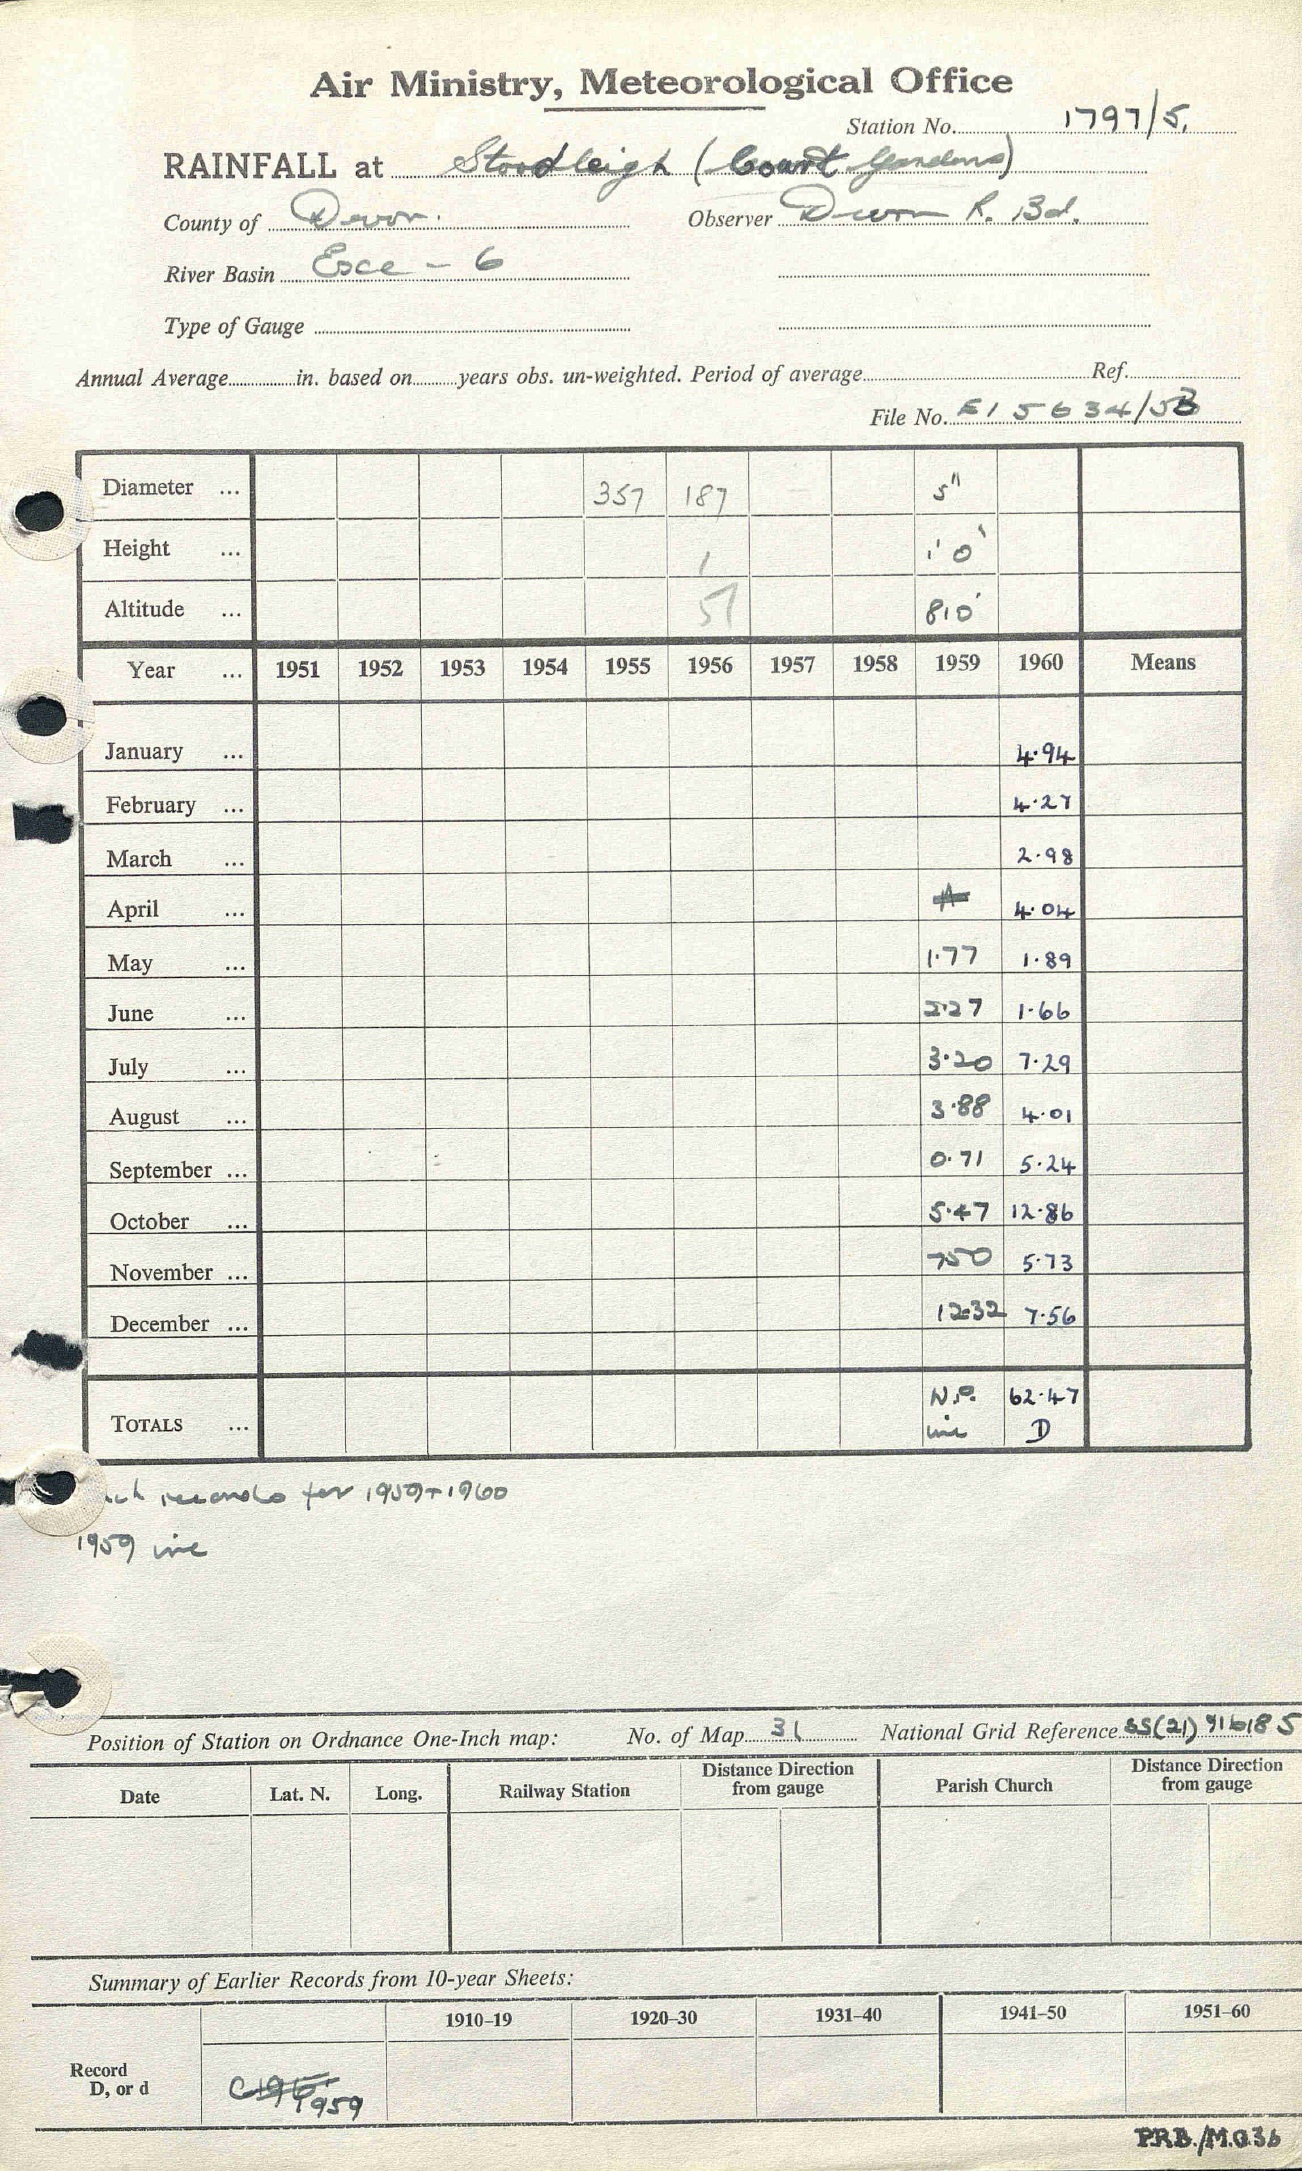 Air Ministry, Meteorological Office
Station No. 1797/5.
RAINFALL at Stoodleigh (Court Gardens)
County of Devon. Observer Devon R. Bd.
River Basin Exe - 6
Type of Gauge
Annual Average in. based on years obs. un-weighted. Period of average Ref.
File No. 15634/58
Diameter ... 357 187 5"
Height ... 1 1' 0"
Altitude ... 57 810'
Year ... 1951 1952 1953 1954 1955 1956 1957 1958 1959 1960 Means
January ... 4.94
February ... 4.27
March ... 2.98
April ... 4.04
May ... 1.77 1.89
June ... 2.27 1.66
July ... 3.20 7.29
August ... 3.88 4.01
September ... 0.71 5.24
October ... 5.47 12.86
November ... 7.50 5.73
December ... 12.32 7.56
TOTALS ... 62.47
inc D
records for 1959+1960
1959 inc
Position of Station on Ordnance One-Inch map: No. of Map 31 National Grid Reference SS(21) 916185
Date Lat. N. Long. Railway Station Distance Direction from gauge Parish Church Distance Direction from gauge
Summary of Earlier Records from 10-year Sheets:
1910-19 1920-30 1931-40 1941-50 1951-60
Record
D, or d
1959
P.R.B./M.O.36